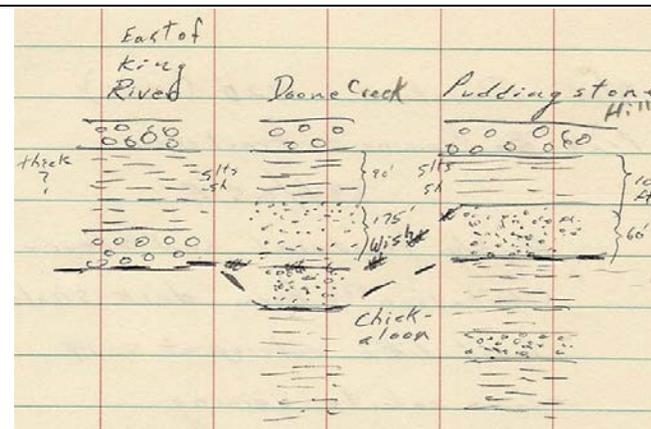 East of
King
River
Doone Creek
Puddingstone
Hill
thick
?
slts
sh
90'
175'
Wish
slts
sh
10
ft
60'
Chick-
aloon